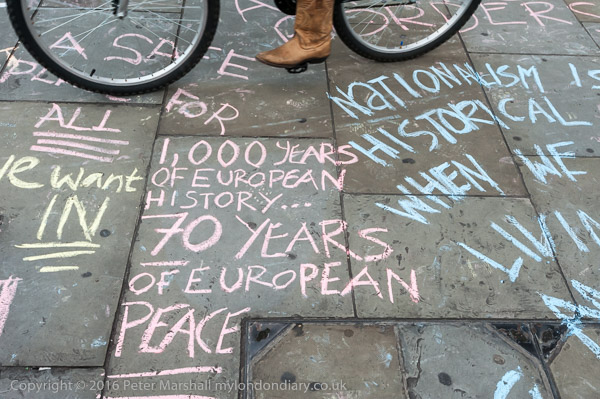 BORDERS
A SAFE
PLACE
FOR
ALL
we want
IN
1,000 YEARS
OF EUROPEAN
HISTORY...
70 YEARS
OF EUROPEAN
PEACE
NATIONALISM IS
HISTORICAL
WHEN WE
LIVIN
Copyright © 2016 Peter Marshall mylondondiary.co.uk